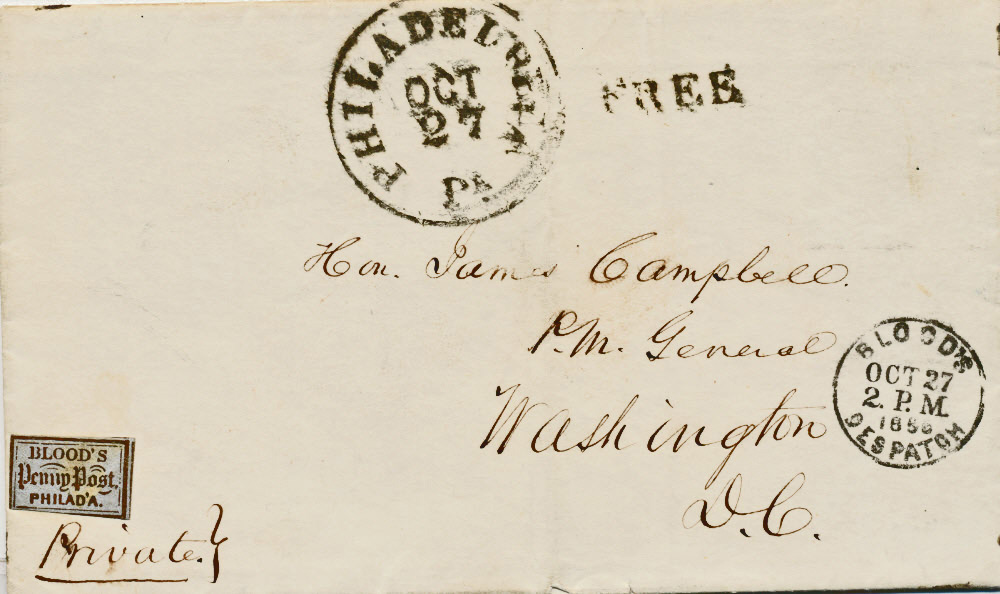 PHILADELPHIA Pa
OCT
27
FREE
Hon. James Campbell.
P.M. General
Washington
D.C.
BLOOD'S DESPATCH
OCT 27
2. P.M.
1856
BLOOD'S
Penny Post,
PHILAD'A.
Private.}